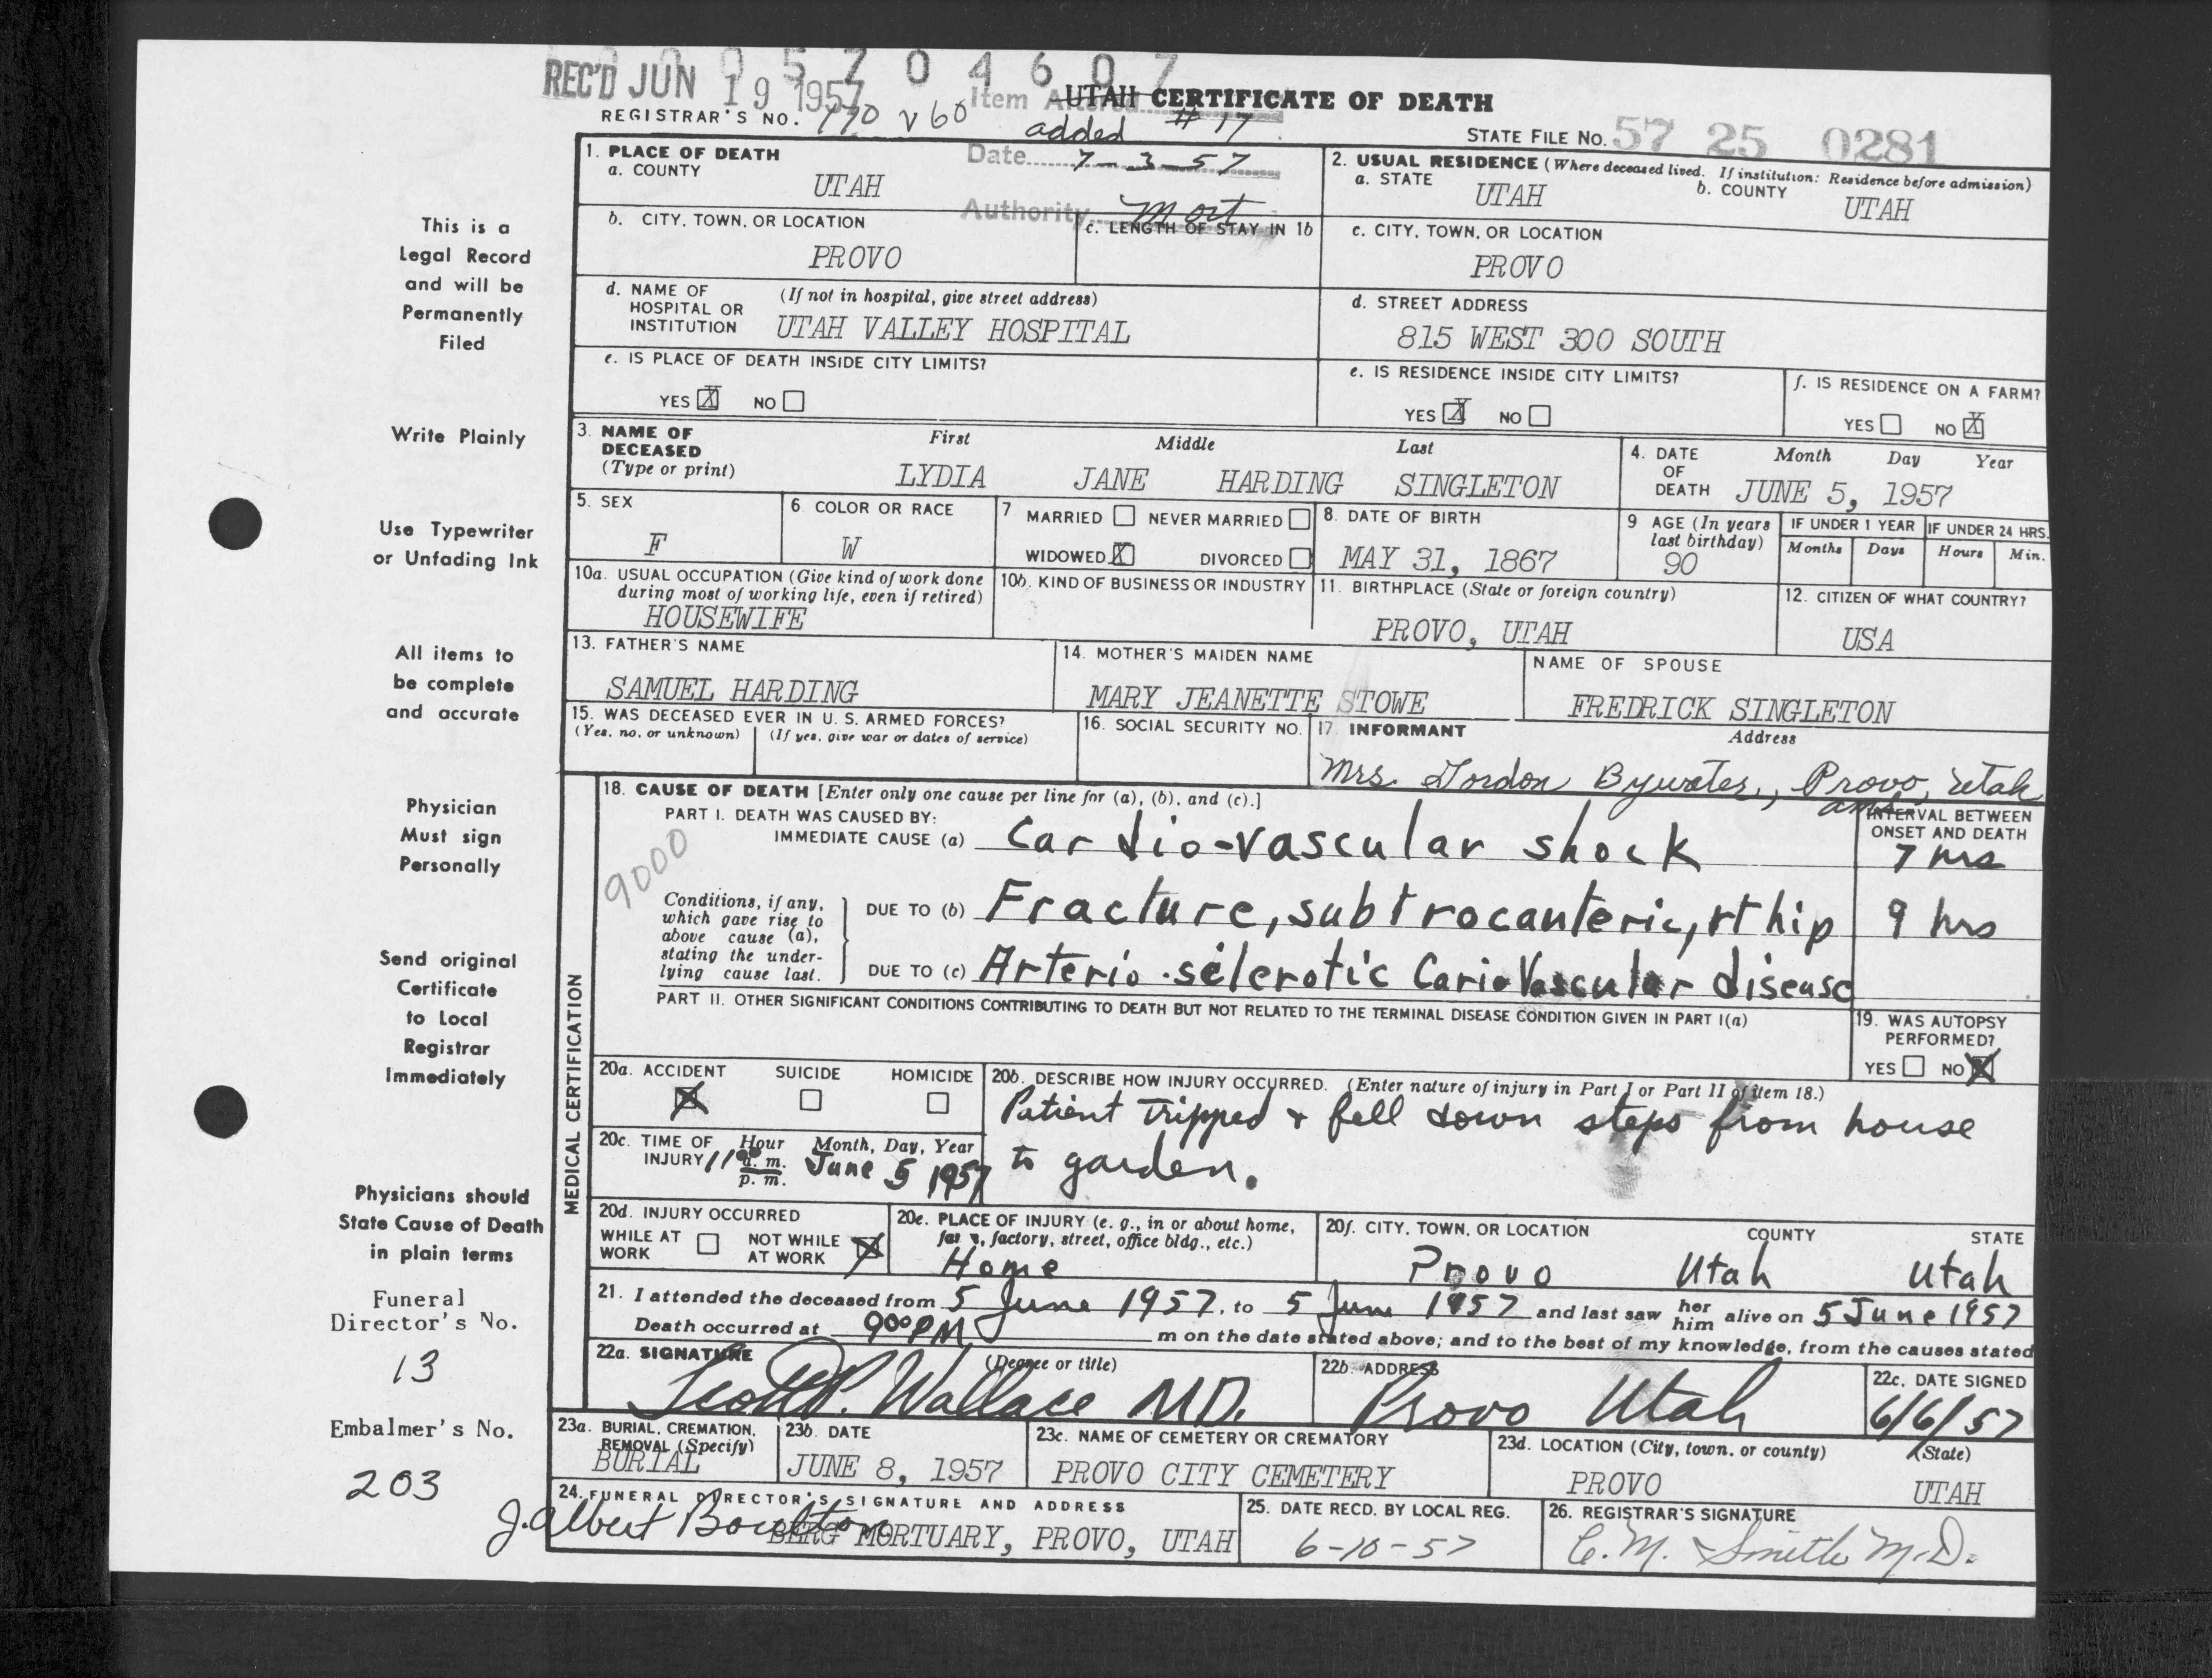 0 0 0 5 7 0 4 6 0 7
REC'D JUN 19 1957
Item Altered # 17
UTAH CERTIFICATE OF DEATH
REGISTRAR'S NO. v 60
added
STATE FILE NO. 57 25 0281
Date 7-3-57
Authority mort
1. PLACE OF DEATH
a. COUNTY
UTAH
2. USUAL RESIDENCE (Where deceased lived. If institution: Residence before admission)
a. STATE UTAH b. COUNTY UTAH
b. CITY, TOWN, OR LOCATION
PROVO
c. LENGTH OF STAY IN 1b
c. CITY, TOWN, OR LOCATION
PROVO
d. NAME OF HOSPITAL OR INSTITUTION (If not in hospital, give street address)
UTAH VALLEY HOSPITAL
d. STREET ADDRESS
815 WEST 300 SOUTH
e. IS PLACE OF DEATH INSIDE CITY LIMITS?
YES X NO
e. IS RESIDENCE INSIDE CITY LIMITS?
YES X NO
f. IS RESIDENCE ON A FARM?
YES NO X
3. NAME OF DECEASED (Type or print) First Middle Last
LYDIA JANE HARDING SINGLETON
4. DATE OF DEATH Month Day Year
JUNE 5, 1957
5. SEX
F
6. COLOR OR RACE
W
7. MARRIED NEVER MARRIED
WIDOWED X DIVORCED
8. DATE OF BIRTH
MAY 31, 1867
9 AGE (In years last birthday)
90
IF UNDER 1 YEAR IF UNDER 24 HRS.
Months Days Hours Min.
10a. USUAL OCCUPATION (Give kind of work done during most of working life, even if retired)
HOUSEWIFE
10b. KIND OF BUSINESS OR INDUSTRY
11. BIRTHPLACE (State or foreign country)
PROVO, UTAH
12. CITIZEN OF WHAT COUNTRY?
USA
13. FATHER'S NAME
SAMUEL HARDING
14. MOTHER'S MAIDEN NAME
MARY JEANETTE STOWE
NAME OF SPOUSE
FREDRICK SINGLETON
15. WAS DECEASED EVER IN U. S. ARMED FORCES?
(Yes, no, or unknown) (If yes, give war or dates of service)
16. SOCIAL SECURITY NO.
17. INFORMANT Address
Mrs. Gordon Bywater, Provo, Utah
MEDICAL CERTIFICATION
18. CAUSE OF DEATH [Enter only one cause per line for (a), (b), and (c).]
INTERVAL BETWEEN ONSET AND DEATH
PART I. DEATH WAS CAUSED BY:
IMMEDIATE CAUSE (a) Cardio-vascular shock 7 hrs
9000
Conditions, if any, which gave rise to above cause (a), stating the underlying cause last.
DUE TO (b) Fracture, subtrocanteric, rt hip 9 hrs
DUE TO (c) Arterio-sclerotic CarioVascular disease
PART II. OTHER SIGNIFICANT CONDITIONS CONTRIBUTING TO DEATH BUT NOT RELATED TO THE TERMINAL DISEASE CONDITION GIVEN IN PART I(a)
19. WAS AUTOPSY PERFORMED?
YES NO X
20a. ACCIDENT X SUICIDE HOMICIDE
20b. DESCRIBE HOW INJURY OCCURRED. (Enter nature of injury in Part I or Part II of item 18.)
Patient tripped + fell down steps from house
to garden.
20c. TIME OF INJURY Hour Month, Day, Year
11 00 a. m. p. m. June 5 1957
20d. INJURY OCCURRED
WHILE AT WORK NOT WHILE AT WORK X
20e. PLACE OF INJURY (e. g., in or about home, farm, factory, street, office bldg., etc.)
Home
20f. CITY, TOWN, OR LOCATION COUNTY STATE
Provo Utah Utah
21. I attended the deceased from 5 June 1957, to 5 June 1957 and last saw her him alive on 5 June 1957
Death occurred at 9 00 PM m on the date stated above; and to the best of my knowledge, from the causes stated
22a. SIGNATURE (Degree or title)
Scott P. Wallace M.D.
22b. ADDRESS
Provo Utah
22c. DATE SIGNED
6/6/57
23a. BURIAL, CREMATION, REMOVAL (Specify)
BURIAL
23b. DATE
JUNE 8, 1957
23c. NAME OF CEMETERY OR CREMATORY
PROVO CITY CEMETERY
23d. LOCATION (City, town, or county) (State)
PROVO UTAH
24. FUNERAL DIRECTOR'S SIGNATURE AND ADDRESS
J. Albert Boulton
BERG MORTUARY, PROVO, UTAH
25. DATE RECD. BY LOCAL REG.
6-10-57
26. REGISTRAR'S SIGNATURE
C. M. Smith M.D.
This is a
Legal Record
and will be
Permanently
Filed
Write Plainly
Use Typewriter
or Unfading Ink
All items to
be complete
and accurate
Physician
Must sign
Personally
Send original
Certificate
to Local
Registrar
Immediately
Physicians should
State Cause of Death
in plain terms
Funeral
Director's No.
13
Embalmer's No.
203